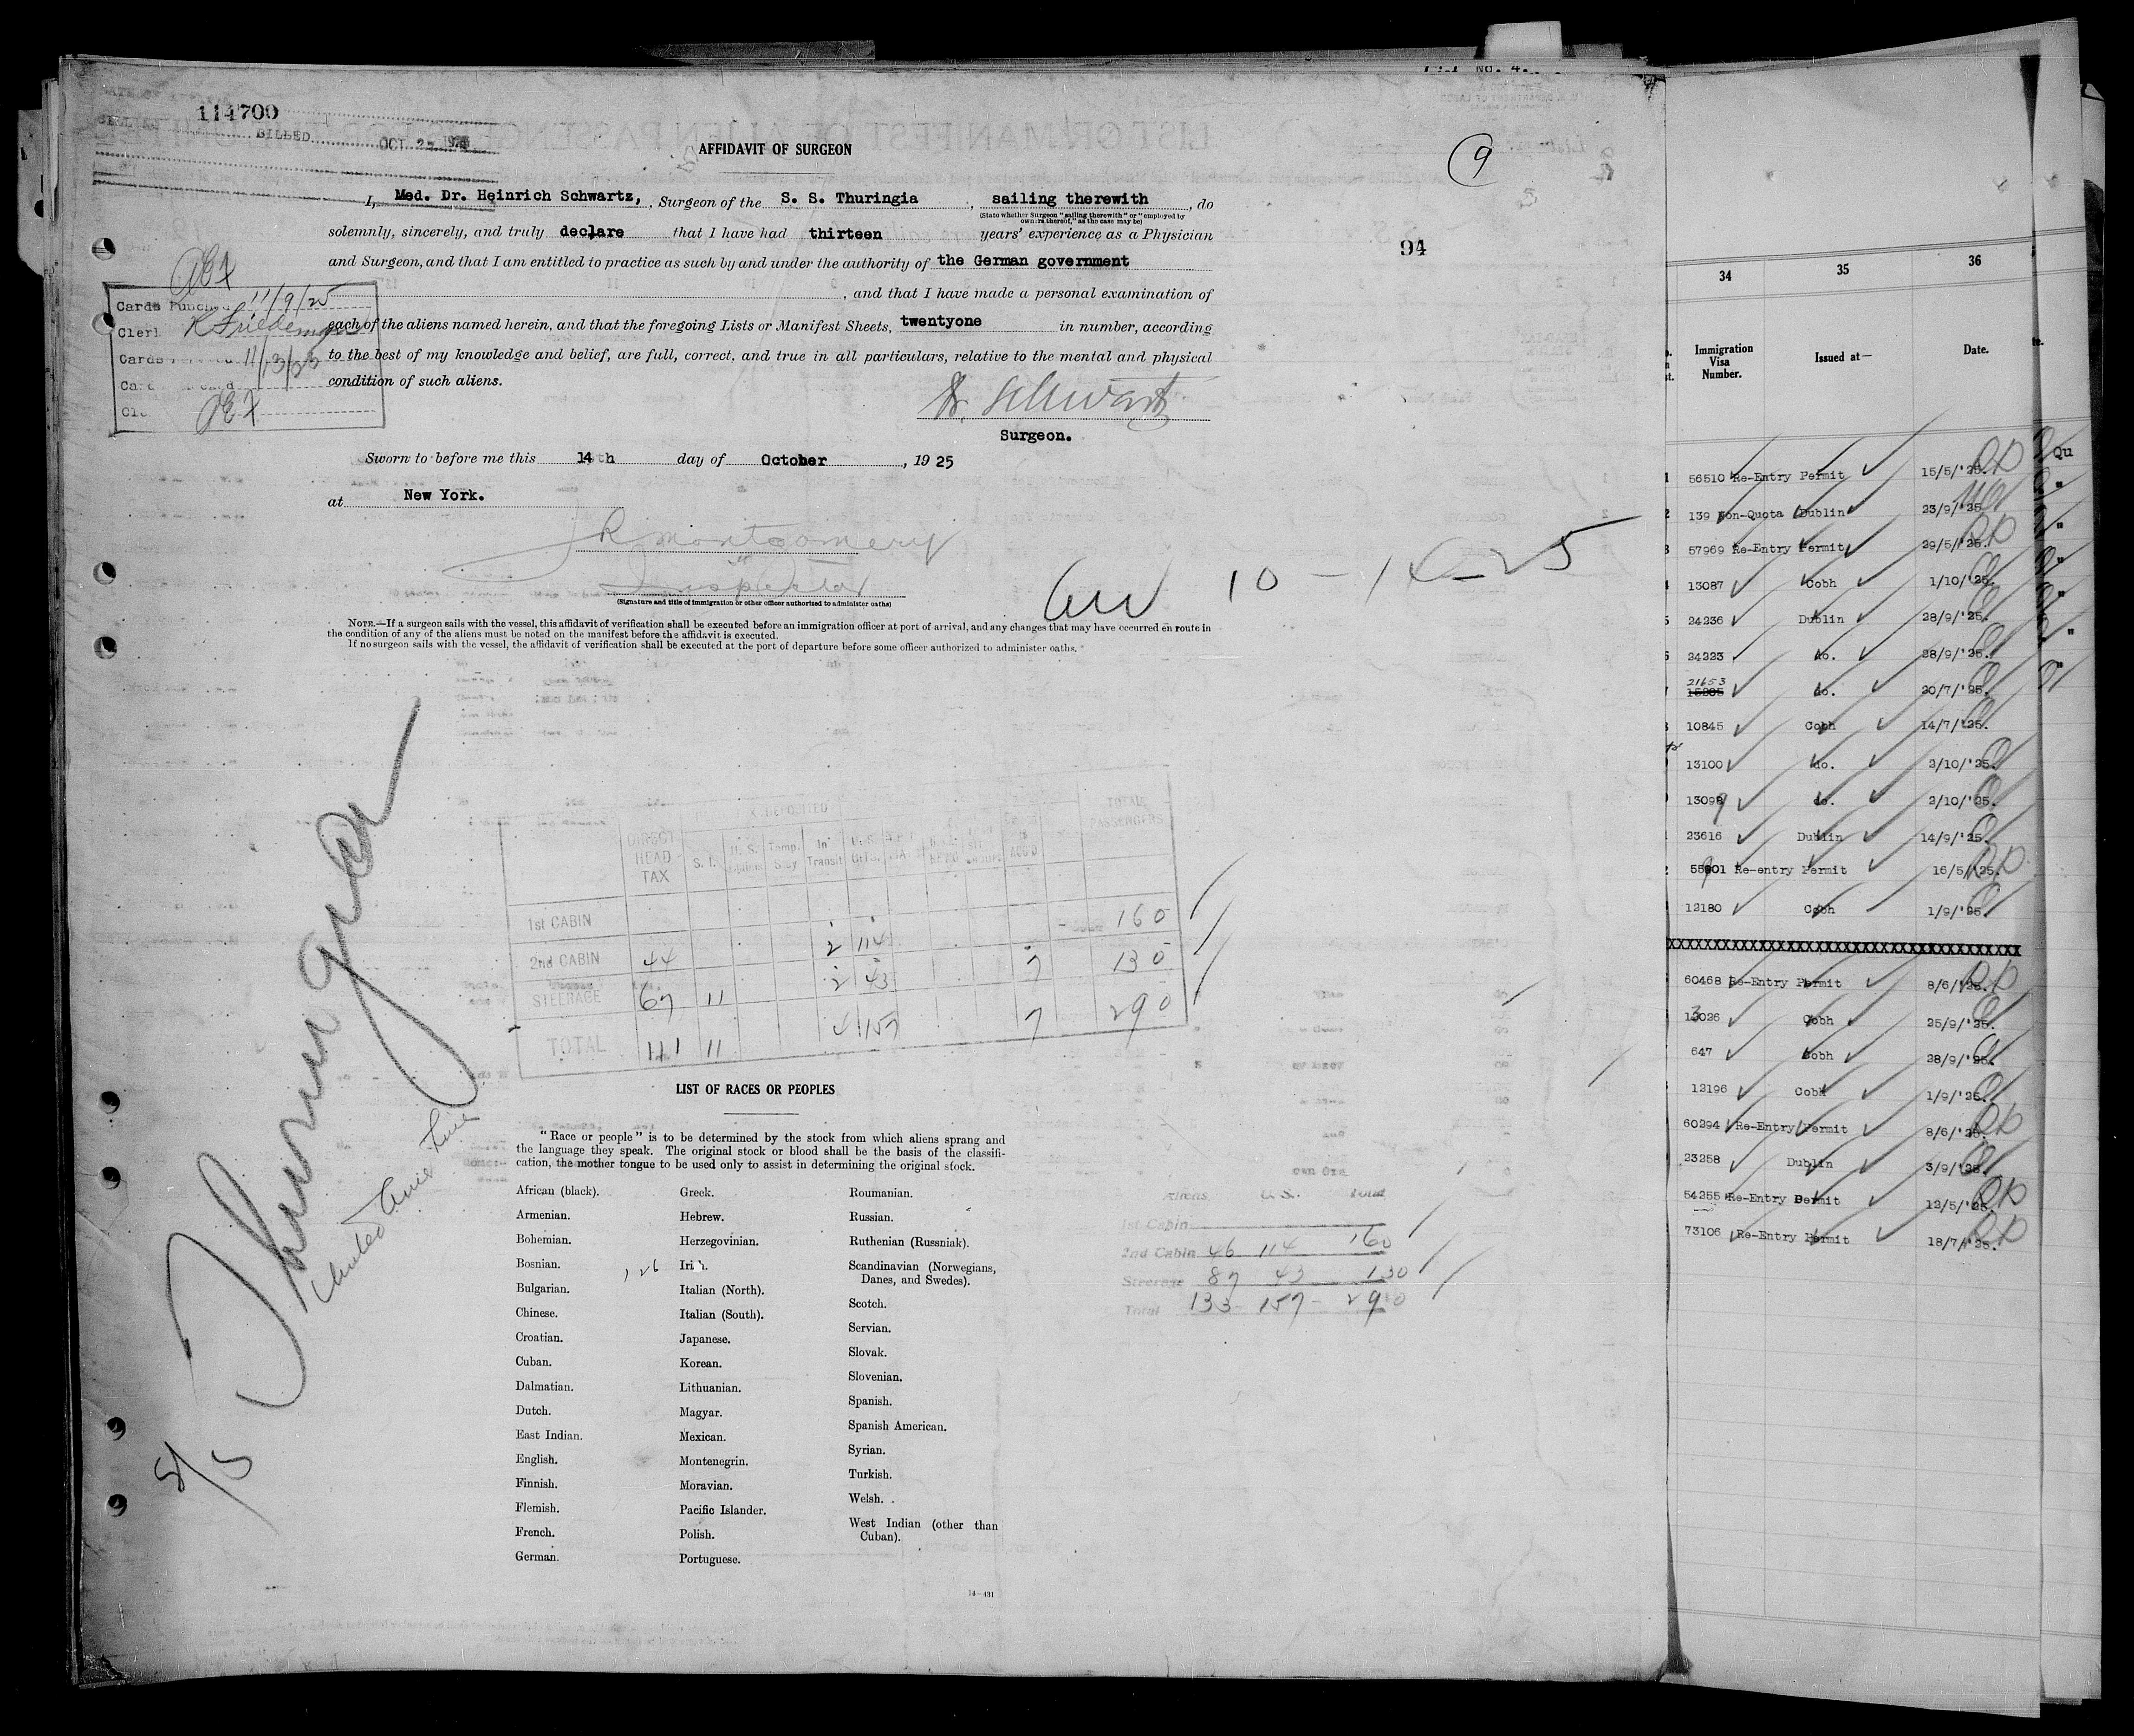 114700
BILLED
OCT 27
AFFIDAVIT OF SURGEON
9
I, Med. Dr. Heinrich Schwartz, , Surgeon of the S. S. Thuringia , sailing therewith , do
(State whether Surgeon "sailing therewith" or "employed by owners thereof," as the case may be)
solemnly, sincerely, and truly declare that I have had thirteen years' experience as a Physician
94
and Surgeon, and that I am entitled to practice as such by and under the authority of the German government
, and that I have made a personal examination of
each of the aliens named herein, and that the foregoing Lists or Manifest Sheets, twentyone in number, according
to the best of my knowledge and belief, are full, correct, and true in all particulars, relative to the mental and physical
condition of such aliens.
Cards Punched 11/9/25
Clerk K Friedeman
Cards 11/13/25
Dr. Schwartz
Surgeon.
Sworn to before me this 14th day of October , 1925
at New York.
R Montgomery
Inspector
(Signature and title of immigration or other officer authorized to administer oaths)
10-14-25
NOTE.—If a surgeon sails with the vessel, this affidavit of verification shall be executed before an immigration officer at port of arrival, and any changes that may have occurred en route in
the condition of any of the aliens must be noted on the manifest before the affidavit is executed.
If no surgeon sails with the vessel, the affidavit of verification shall be executed at the port of departure before some officer authorized to administer oaths.
S/S Thuringia
United Amer Line
DIRECT HEAD TAX S. I. Temp. Stay In Transit TOTAL PASSENGERS
1st CABIN
2nd CABIN 44 2 114 160
STEERAGE 67 11 2 43 7 130
TOTAL 111 11 4 157 7 290
LIST OF RACES OR PEOPLES
"Race or people" is to be determined by the stock from which aliens sprang and
the language they speak. The original stock or blood shall be the basis of the classifi-
cation, the mother tongue to be used only to assist in determining the original stock.
African (black).
Armenian.
Bohemian.
Bosnian.
Bulgarian.
Chinese.
Croatian.
Cuban.
Dalmatian.
Dutch.
East Indian.
English.
Finnish.
Flemish.
French.
German.
Greek.
Hebrew.
Herzegovinian.
126 Irish.
Italian (North).
Italian (South).
Japanese.
Korean.
Lithuanian.
Magyar.
Mexican.
Montenegrin.
Moravian.
Pacific Islander.
Polish.
Portuguese.
Roumanian.
Russian.
Ruthenian (Russniak).
Scandinavian (Norwegians,
Danes, and Swedes).
Scotch.
Servian.
Slovak.
Slovenian.
Spanish.
Spanish American.
Syrian.
Turkish.
Welsh.
West Indian (other than
Cuban).
14—431
Aliens U.S. Total
1st Cabin
2nd Cabin 46 114 160
Steerage 87 43 130
Total 133 157 290
34 35 36
Immigration Visa Number. Issued at— Date.
56510 Re-Entry Permit 15/5/'25.
139 Non-Quota Dublin 23/9/'25.
57969 Re-Entry Permit 29/5/'25.
13087 Cobh 1/10/'25.
24236 Dublin 28/9/'25.
24223 do. 28/9/'25.
21653 do. 20/7/'25.
10845 Cobh 14/7/'25.
13100 do. 2/10/'25.
13099 do. 2/10/'25.
23616 Dublin 14/9/'25.
55901 Re-entry Permit 16/5/'25.
12180 Cobh 1/9/'25.
XXXXXXXXXXXXXXXXXXXXXXXXXXXXXXXXXXX
60468 Re-Entry Permit 8/6/'25.
13026 Cobh 25/9/'25.
647 Cobh 28/9/'25.
12196 Cobh 1/9/'25.
60294 Re-Entry Permit 8/6/'25.
23258 Dublin 3/9/'25.
54255 Re-Entry Permit 12/5/'25.
73106 Re-Entry Permit 18/7/'25.
Qu